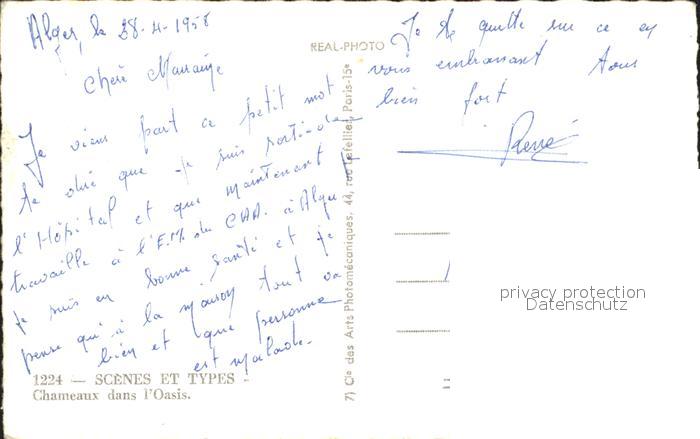 Alger, le 28-4-1958
Chère Marraine
Je viens part ce petit mot
te dire que je suis sorti de
l'Hôpital et que maintenant je
travaille à l'E.M. du CAA. à Alger
je suis en bonne santé et je
pense qu'à la maison tout va
bien et que personne
est malade.
1224 — SCÈNES ET TYPES -
Chameaux dans l'Oasis.
REAL-PHOTO
7) Cie des Arts Photomécaniques, 44, rue Letellier, Paris-15e
Je te quitte sur ce en
vous embrassant tous
bien fort
René
privacy protection
Datenschutz